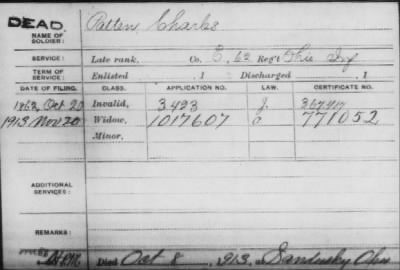 DEAD.
NAME OF SOLDIER: Patten, Charles
SERVICE: Late rank, Co. E, 62 Reg't Ohio Inf
TERM OF SERVICE: Enlisted , 1 Discharged , 1
DATE OF FILING. CLASS. APPLICATION NO. LAW. CERTIFICATE NO.
1862, Oct 20 Invalid, 3493
1913 Nov 20 Widow, 1017607 771052
Minor,
ADDITIONAL SERVICES:
REMARKS:
Died Oct 8, 1913, at Sandusky Ohio